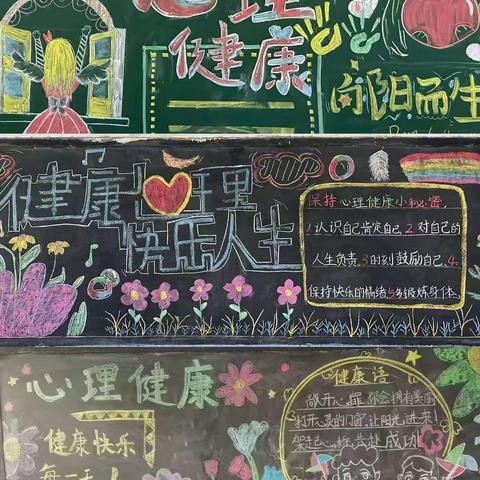 心理
健康
向阳而生
健康心理
快乐人生
保持心理健康小秘密,
1.认识自己肯定自己 2.对自己的
人生负责.3.时刻鼓励自己.4.
保持快乐的情绪5.积极锻炼身体.
心理健康
健康快乐
每一天
健康语
敞开心扉
打开心灵的门窗,让阳光进来!
成功